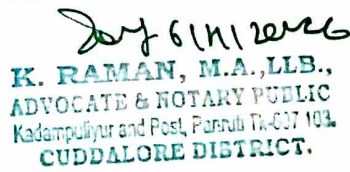 6/11/2026
K. RAMAN, M.A.,LLB.,
ADVOCATE & NOTARY PUBLIC
Kadampuliyur and Post, Panruti Tk-607 103.
CUDDALORE DISTRICT.